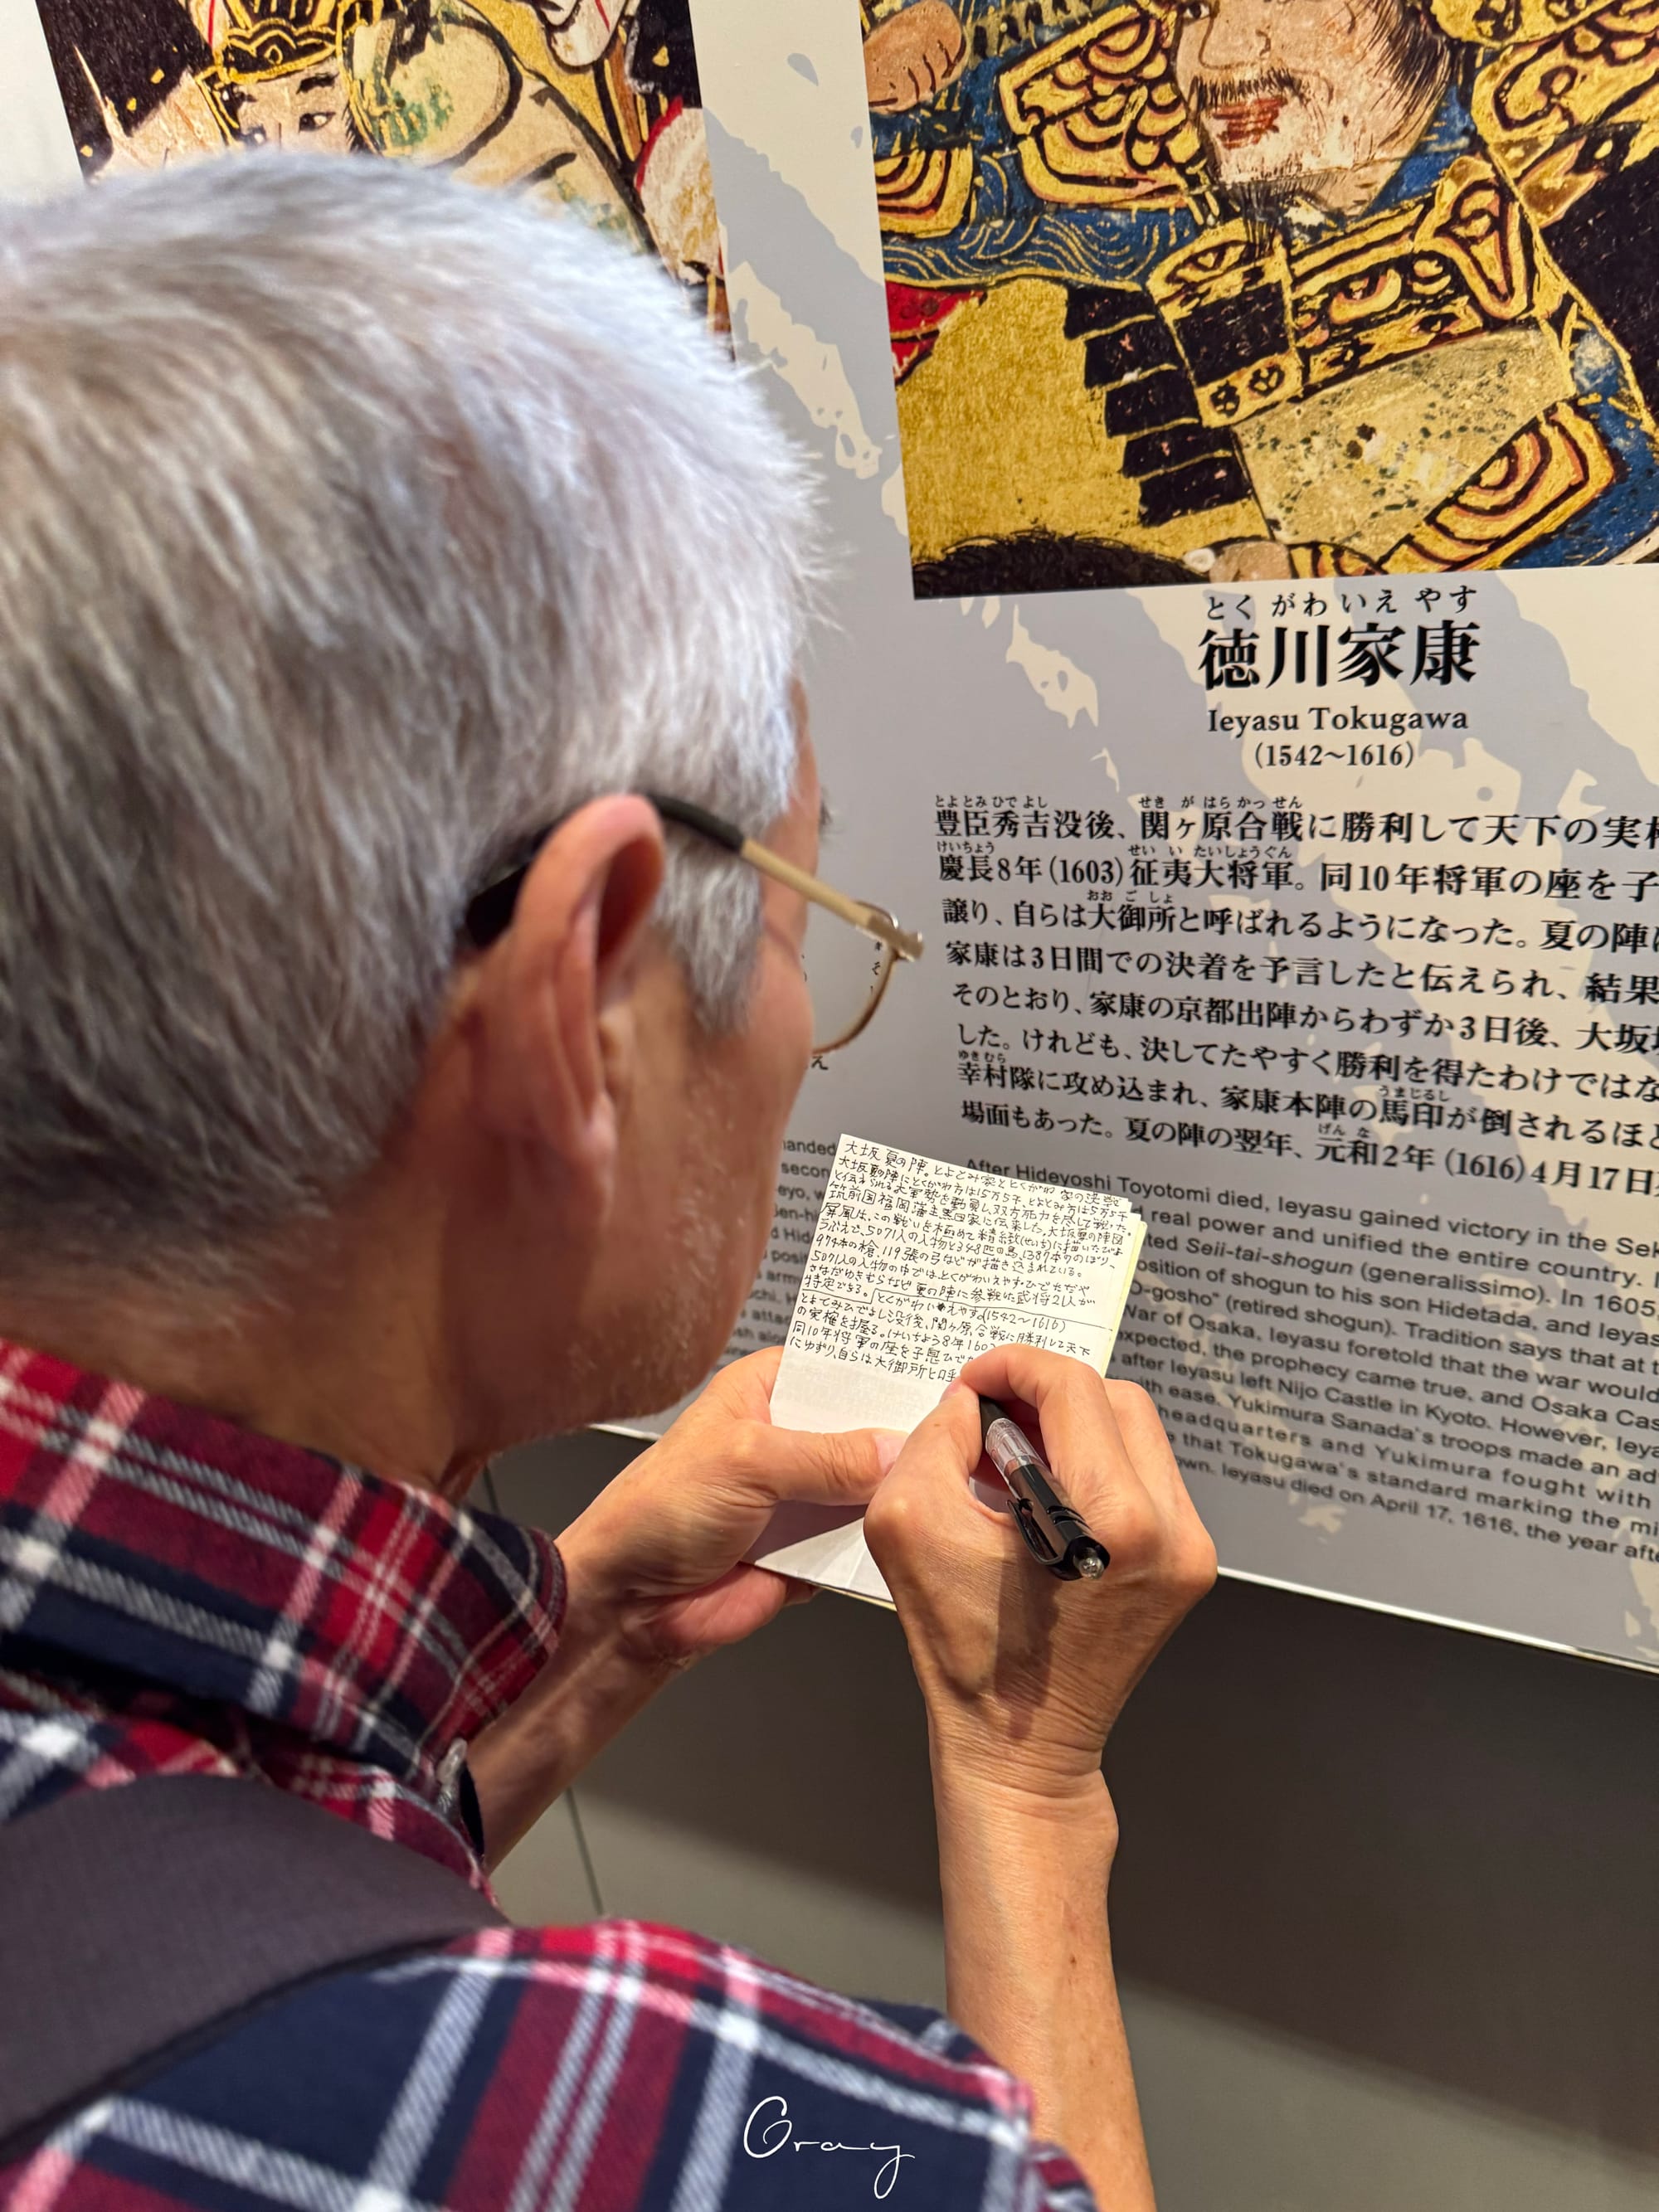 とくがわいえやす
徳川家康
Ieyasu Tokugawa
(1542〜1616)
とよとみひでよし せきがはらかっせん
豊臣秀吉没後、関ヶ原合戦に勝利して天下の実
けいちょう せいいたいしょうぐん
慶長8年(1603)征夷大将軍。同10年将軍の座を子
おおごしょ
譲り、自らは大御所と呼ばれるようになった。夏の陣
家康は3日間での決着を予言したと伝えられ、結果
そのとおり、家康の京都出陣からわずか3日後、大坂
した。けれども、決してたやすく勝利を得たわけではな
ゆきむら うまじるし
幸村隊に攻め込まれ、家康本陣の馬印が倒されるほ
げんな
場面もあった。夏の陣の翌年、元和2年(1616)4月17日
After Hideyoshi Toyotomi died, Ieyasu gained victory in the Sek
real power and unified the entire country.
ted Seii-tai-shogun (generalissimo). In 1605,
osition of shogun to his son Hidetada, and Ieyas
O-gosho" (retired shogun). Tradition says that at t
War of Osaka, Ieyasu foretold that the war would
expected, the prophecy came true, and Osaka Cas
after Ieyasu left Nijo Castle in Kyoto. However, Ieya
with ease. Yukimura Sanada's troops made an ad
headquarters and Yukimura fought with
that Tokugawa's standard marking the mi
own. Ieyasu died on April 17, 1616, the year afte
大坂夏の陣。とよとみ家ととくがわ家の決戦
大坂夏の陣にとくがわ方は15万5千、とよとみ方は5万5千
と伝えられる大軍勢を動員し、双方死力を尽して戦った。
筑前国福岡藩主黒田家に伝来した、大坂夏の陣図
屏風は、この戦いを極めて精緻(せいち)に描いたびょ
うぶえで、5071人の人物と348匹の馬、1387本ののぼり、
974本の槍、119張の弓などが描き込まれている。
5071人の人物の中では、とくがわいえやす・ひでただや
さなだゆきむらなど夏の陣に参戦した武将21人が
特定できる。とくがわいえやす(1542〜1616)
とよとみひでよし没後、関ヶ原合戦に勝利して天下
の実権を握る。けいちょう8年160
同10年将軍の座を子息ひでた
にゆずり、自らは大御所と呼
Gray